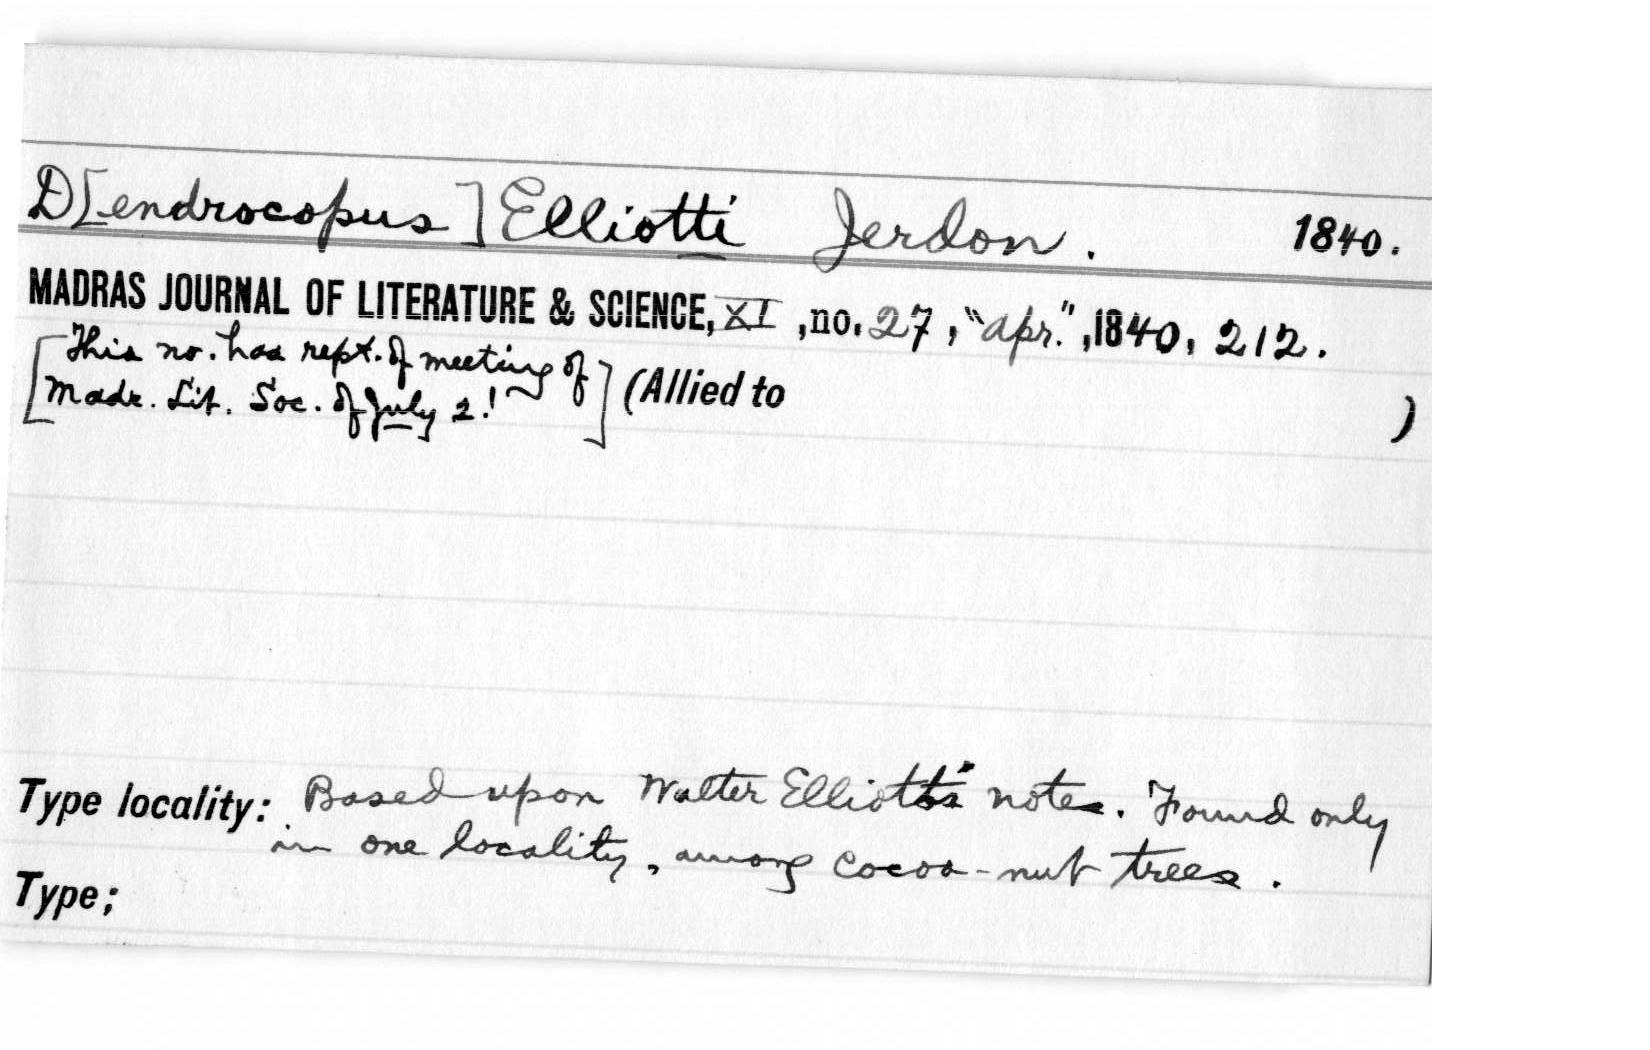 D[endrocopus] Elliotti Jerdon. 1840.
MADRAS JOURNAL OF LITERATURE & SCIENCE, XI, no. 27, "apr.", 1840, 212.
[This no. has rept. of meeting of
Madr. Lit. Soc. of July 2!] (Allied to )
Type locality: Based upon Walter Elliott's notes. Found only
in one locality, among cocoa-nut trees.
Type;